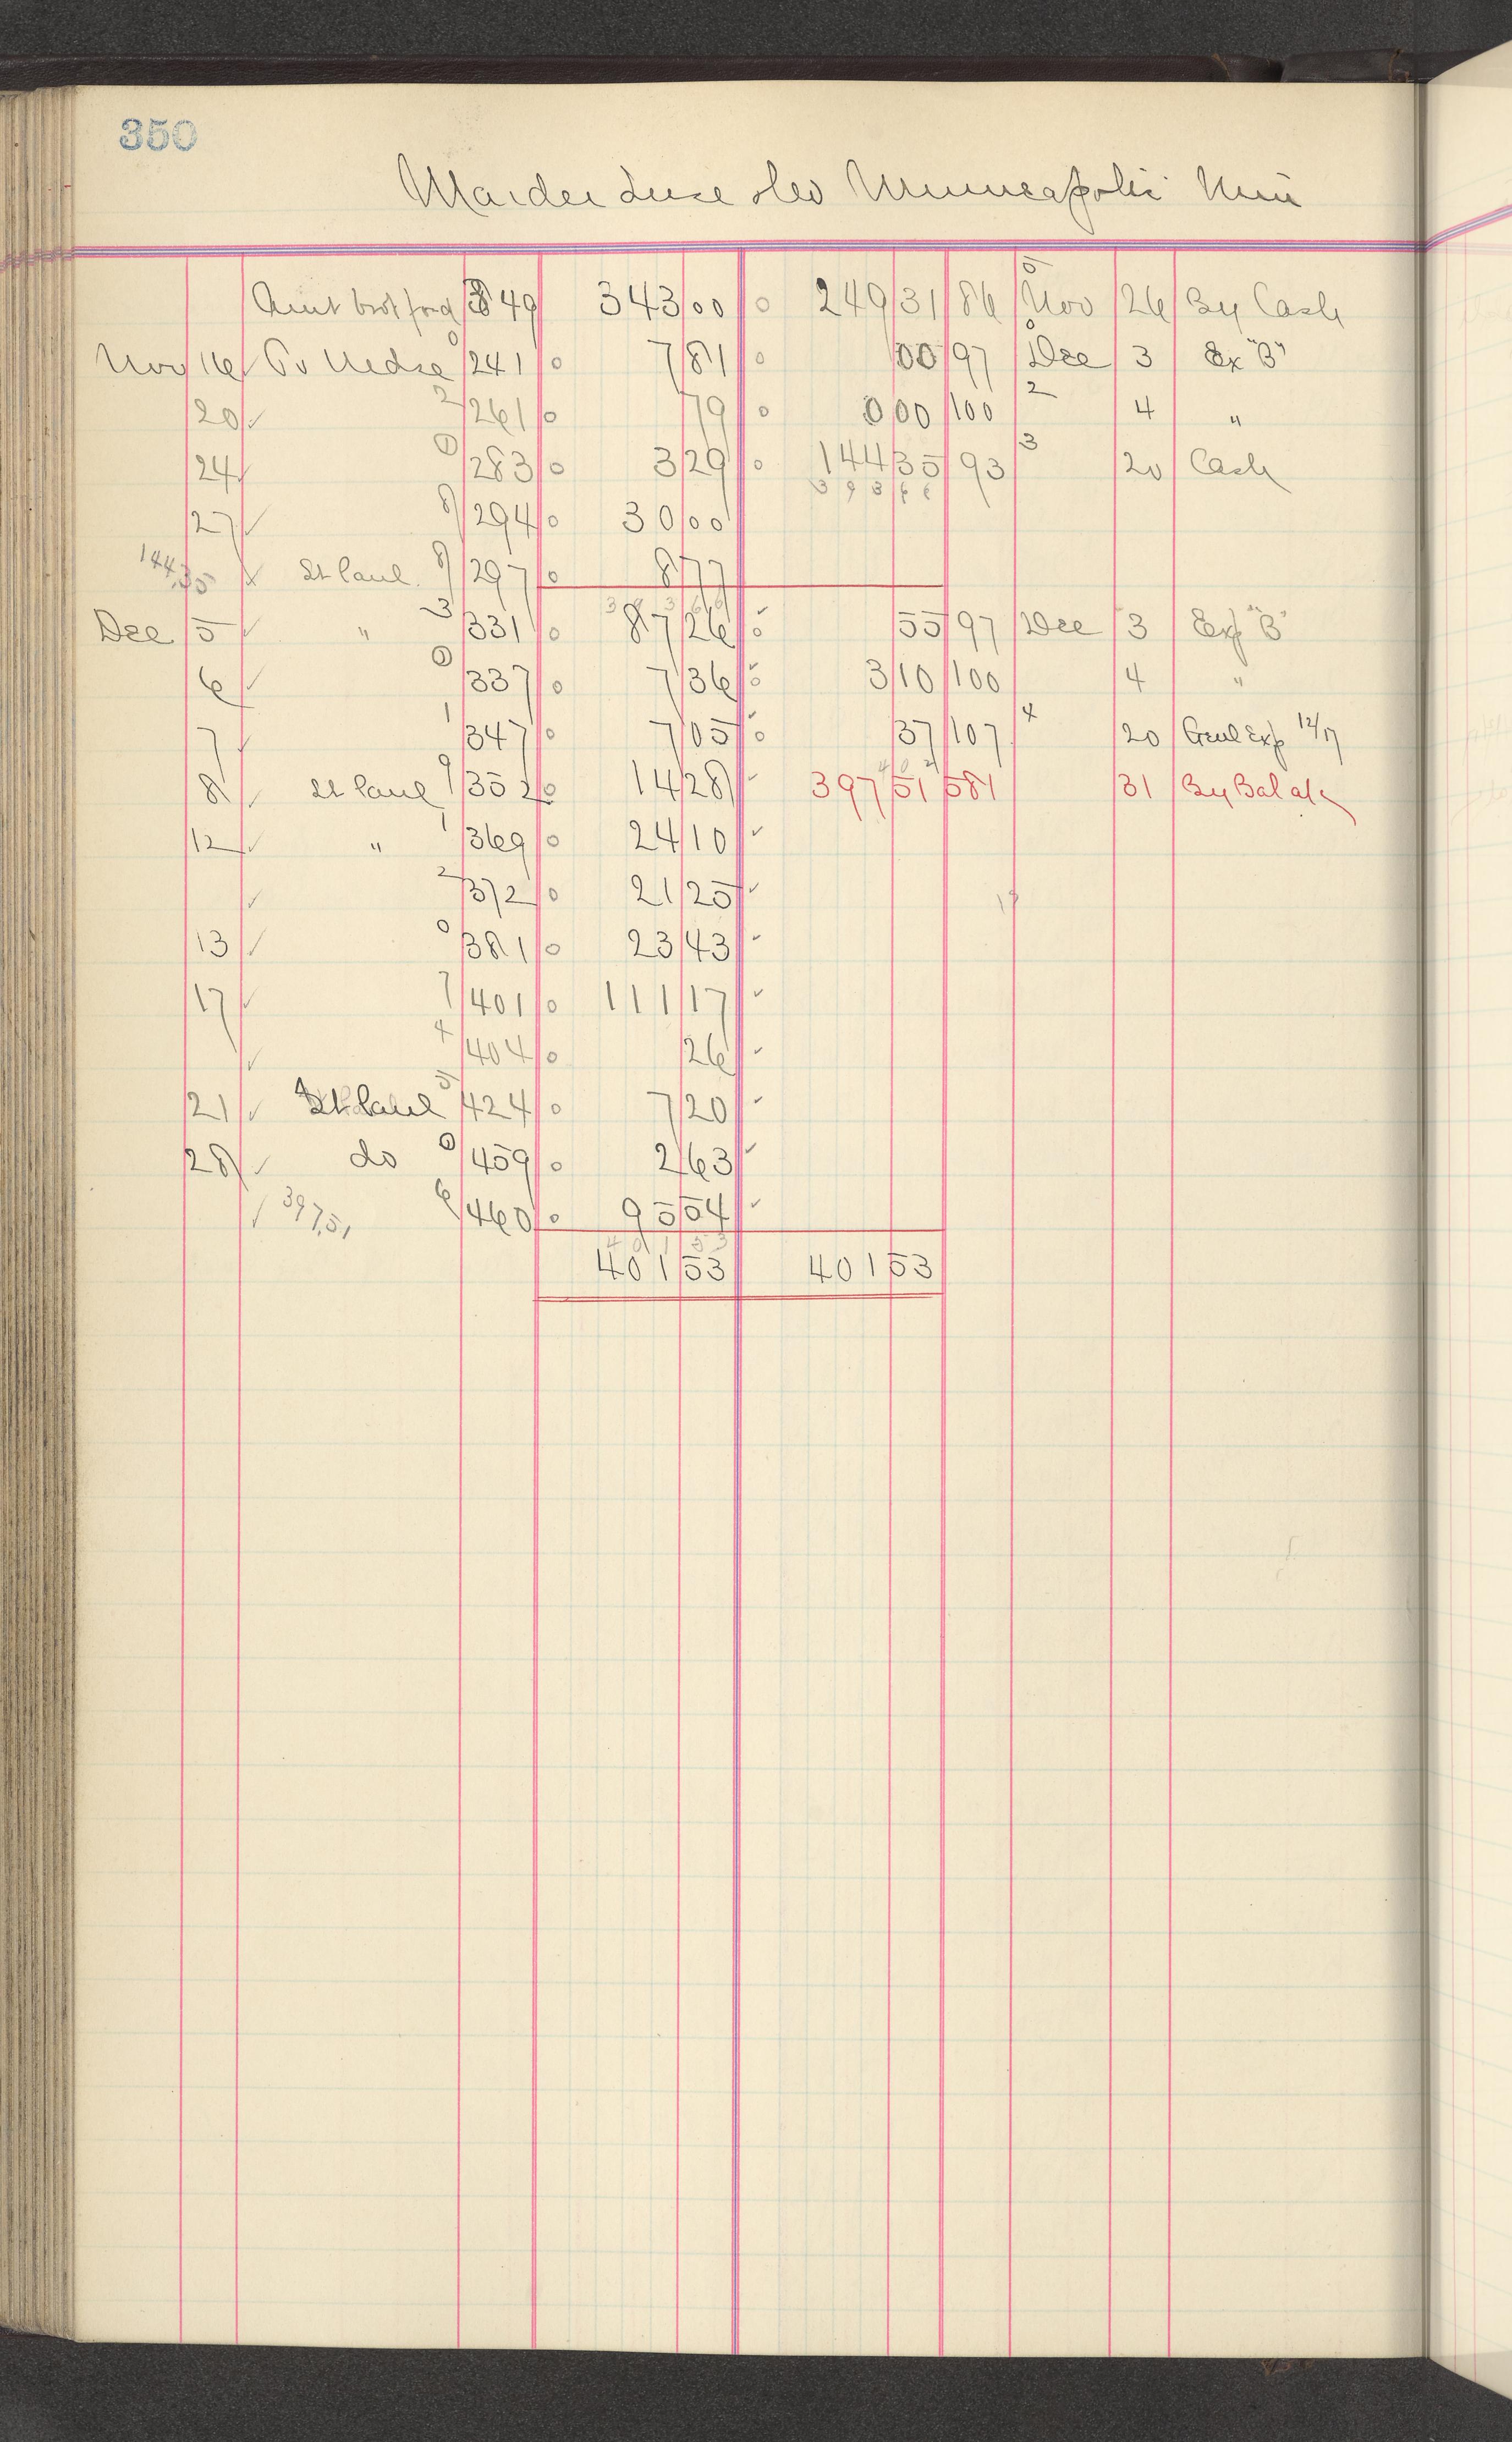 350
Minneapolis Minn
Amt brot ford 349 343 00 249 31 86 Nov 26 By Cash
5
Nov 16 To Mdse 0 241 7 81 00 97 Dec 3 Ex "B"
0
20 2 261 79 0 00 100 4 "
2
24 0 283 3 29 144 35 93 20 Cash
3
393 66
27 8 294 30 00
144.35 St Paul 8 297 8 77
393 66
Dec 5 " 3 331 87 26 55 97 Dec 3 Exp "B"
6 0 337 7 36 3 10 100 4 "
7 1 347 7 05 37 107 4 20 Genl Exp 12/17
40 2
8 St Paul 9 352 14 28 397 51 581 31 By Bal
12 " 1 369 24 10
2 372 21 25
13 0 381 23 43
17 7 401 111 17
4 404 26
21 St Paul 5 424 7 20
28 do 0 459 2 63
397.51 6 460 95 54
401 53
401 53 401 53